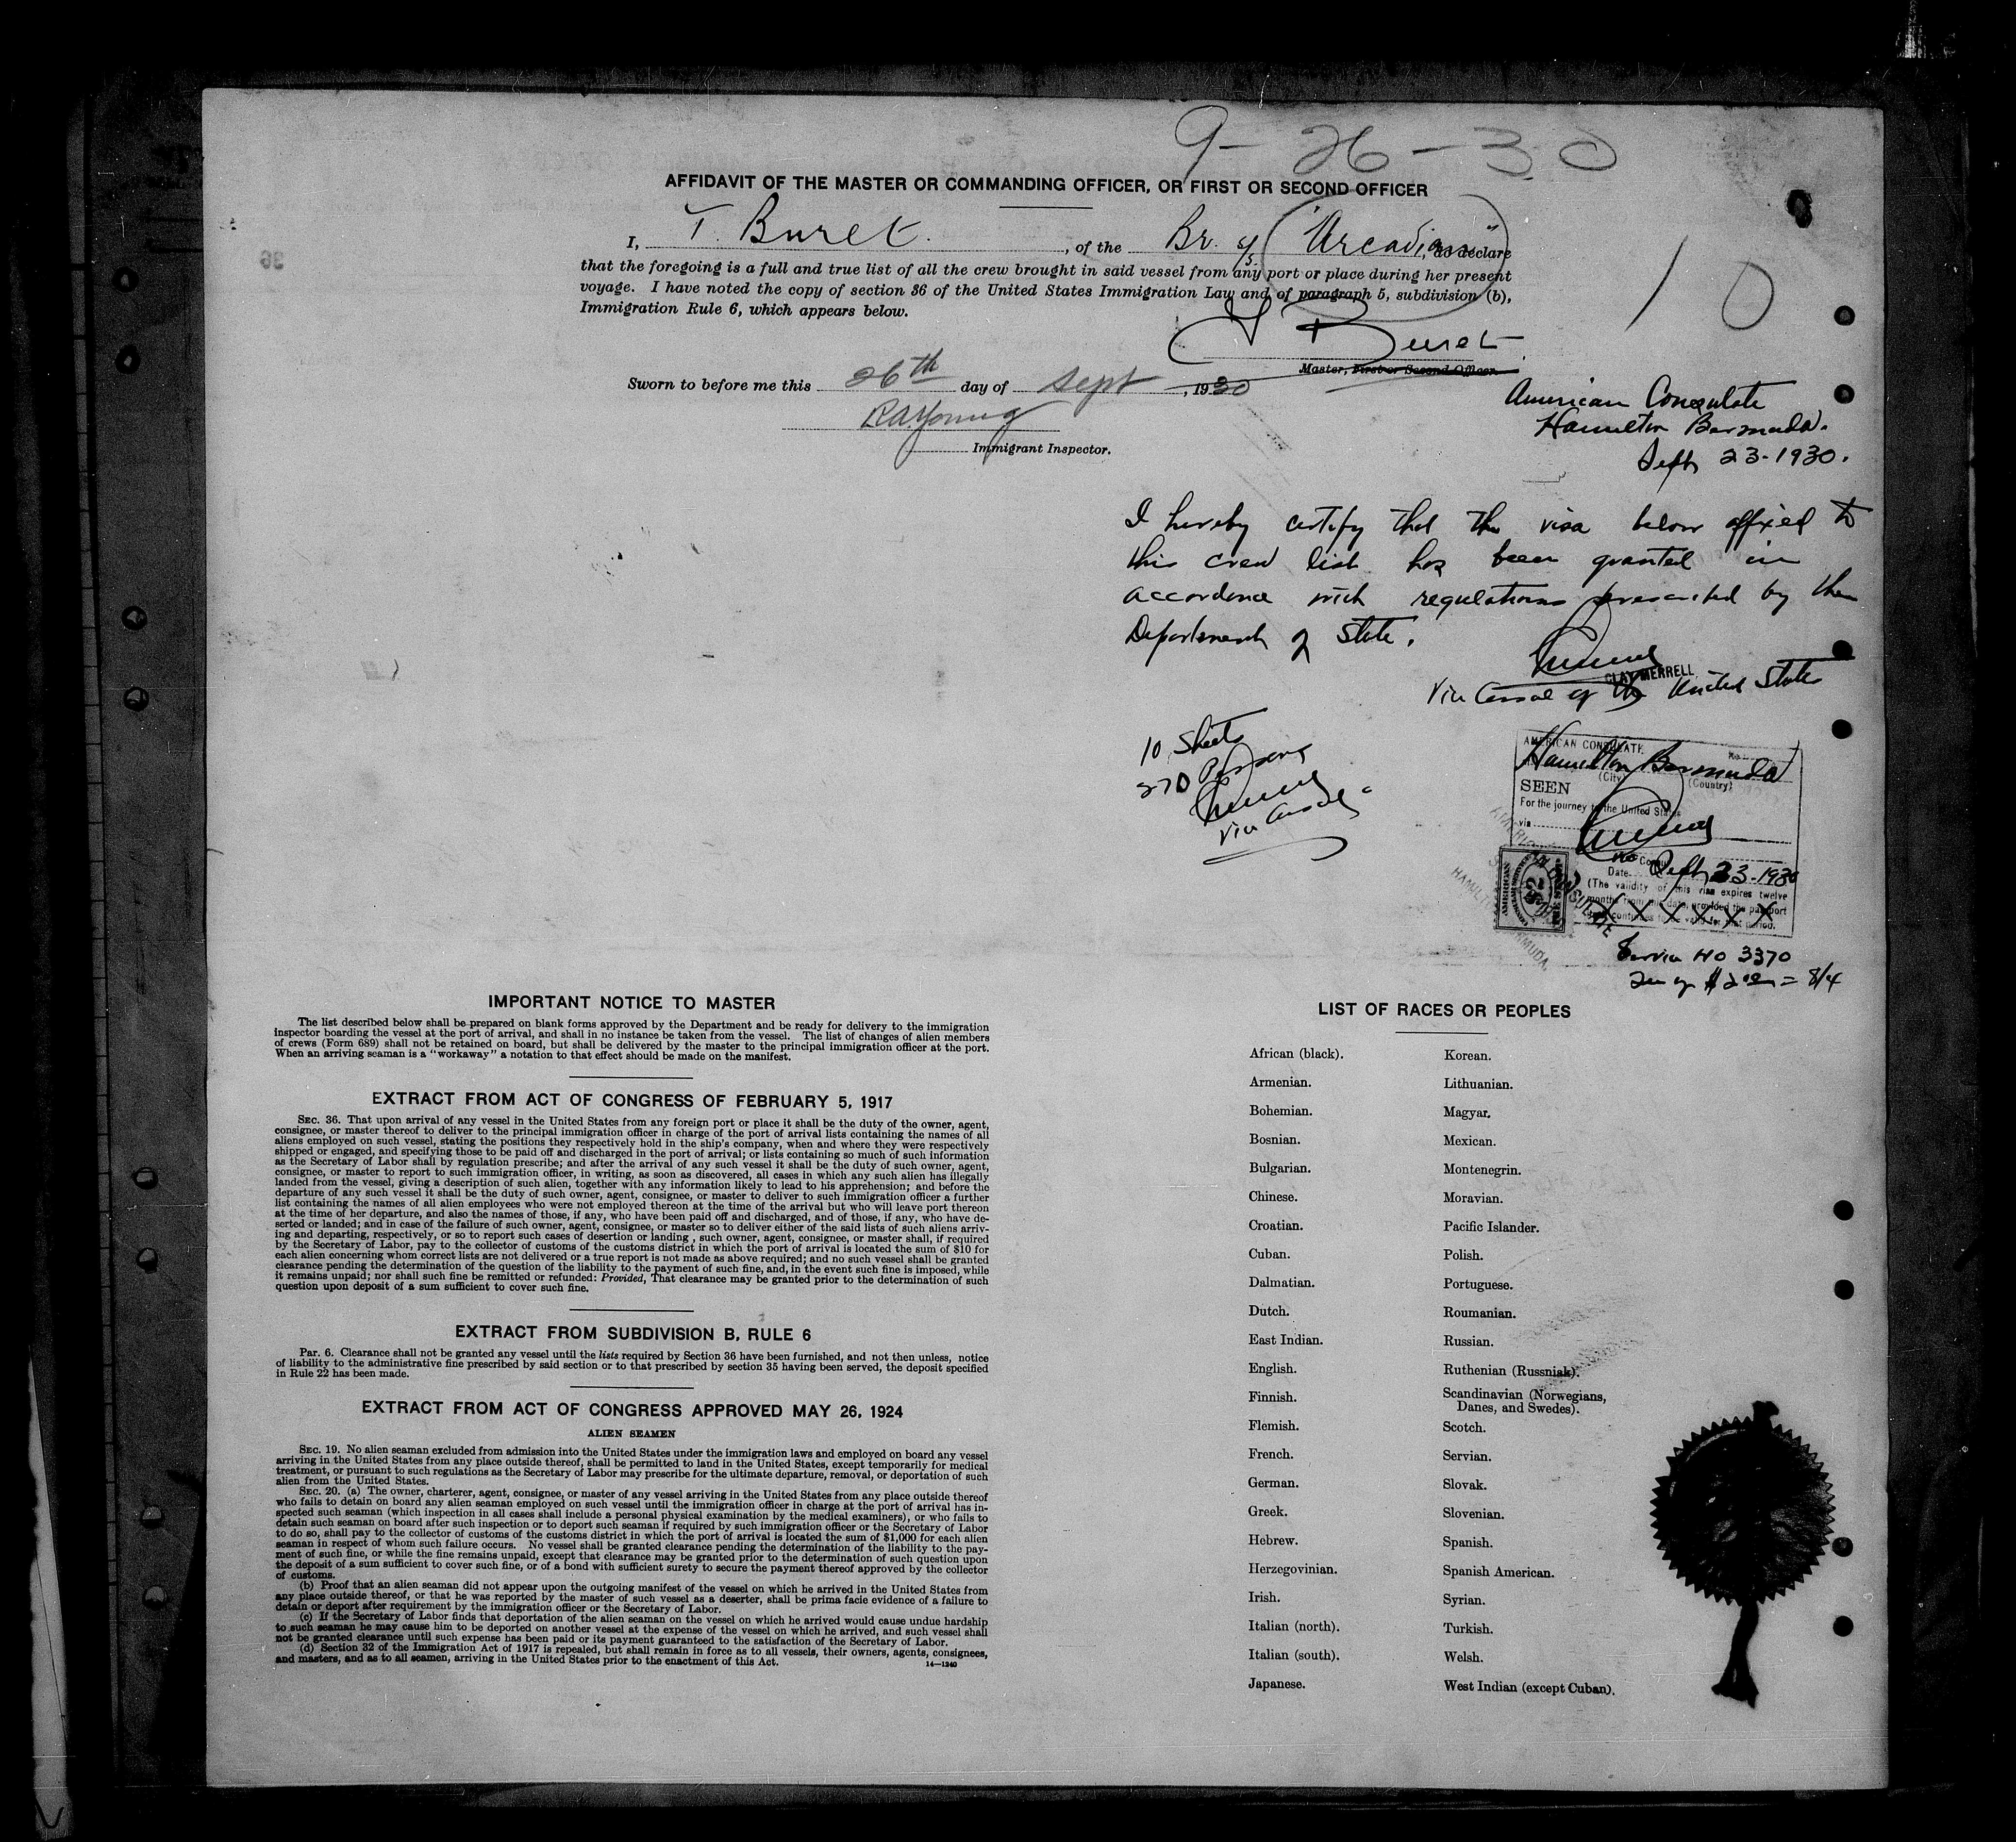 9-26-30
AFFIDAVIT OF THE MASTER OR COMMANDING OFFICER, OR FIRST OR SECOND OFFICER
I, T. Buret, of the Br. S/S. "Arcadian", do declare
that the foregoing is a full and true list of all the crew brought in said vessel from any port or place during her present
voyage. I have noted the copy of section 36 of the United States Immigration Law and of paragraph 5, subdivision (b),
Immigration Rule 6, which appears below.
10
T Buret
Master, First or Second Officer.
Sworn to before me this 26th day of Sept, 1930
R A Young
Immigrant Inspector.
American Consulate
Hamilton Bermuda.
Sept 23-1930.
I hereby certify that the visa below affixed to
this crew list has been granted in
accordance with regulations prescribed by the
Department of State.
CLAY MERRELL
Vice Consul of the United States
10 Sheets
270 Persons
Vice Consul
AMERICAN CONSULATE
No
Hamilton Bermuda
(City) (Country)
SEEN
For the journey to the United States
via
Vice Consul
Date Sept 23-1930
(The validity of this visa expires twelve
months from this date, provided the passport
continues to be valid for that period.
X X X X X X
AMERICAN CONSULATE
HAMILTON BERMUDA.
Service No 3370
$2.00 = 8/4
IMPORTANT NOTICE TO MASTER
The list described below shall be prepared on blank forms approved by the Department and be ready for delivery to the immigration
inspector boarding the vessel at the port of arrival, and shall in no instance be taken from the vessel. The list of changes of alien members
of crews (Form 689) shall not be retained on board, but shall be delivered by the master to the principal immigration officer at the port.
When an arriving seaman is a "workaway" a notation to that effect should be made on the manifest.
EXTRACT FROM ACT OF CONGRESS OF FEBRUARY 5, 1917
SEC. 36. That upon arrival of any vessel in the United States from any foreign port or place it shall be the duty of the owner, agent,
consignee, or master thereof to deliver to the principal immigration officer in charge of the port of arrival lists containing the names of all
aliens employed on such vessel, stating the positions they respectively hold in the ship's company, when and where they were respectively
shipped or engaged, and specifying those to be paid off and discharged in the port of arrival; or lists containing so much of such information
as the Secretary of Labor shall by regulation prescribe; and after the arrival of any such vessel it shall be the duty of such owner, agent,
consignee, or master to report to such immigration officer, in writing, as soon as discovered, all cases in which any such alien has illegally
landed from the vessel, giving a description of such alien, together with any information likely to lead to his apprehension; and before the
departure of any such vessel it shall be the duty of such owner, agent, consignee, or master to deliver to such immigration officer a further
list containing the names of all alien employees who were not employed thereon at the time of the arrival but who will leave port thereon
at the time of her departure, and also the names of those, if any, who have been paid off and discharged, and of those, if any, who have de-
serted or landed; and in case of the failure of such owner, agent, consignee, or master so to deliver either of the said lists of such aliens arriv-
ing and departing, respectively, or so to report such cases of desertion or landing , such owner, agent, consignee, or master shall, if required
by the Secretary of Labor, pay to the collector of customs of the customs district in which the port of arrival is located the sum of $10 for
each alien concerning whom correct lists are not delivered or a true report is not made as above required; and no such vessel shall be granted
clearance pending the determination of the question of the liability to the payment of such fine, and, in the event such fine is imposed, while
it remains unpaid; nor shall such fine be remitted or refunded: Provided, That clearance may be granted prior to the determination of such
question upon deposit of a sum sufficient to cover such fine.
EXTRACT FROM SUBDIVISION B, RULE 6
Par. 6. Clearance shall not be granted any vessel until the lists required by Section 36 have been furnished, and not then unless, notice
of liability to the administrative fine prescribed by said section or to that prescribed by section 35 having been served, the deposit specified
in Rule 22 has been made.
EXTRACT FROM ACT OF CONGRESS APPROVED MAY 26, 1924
ALIEN SEAMEN
SEC. 19. No alien seaman excluded from admission into the United States under the immigration laws and employed on board any vessel
arriving in the United States from any place outside thereof, shall be permitted to land in the United States, except temporarily for medical
treatment, or pursuant to such regulations as the Secretary of Labor may prescribe for the ultimate departure, removal, or deportation of such
alien from the United States.
SEC. 20. (a) The owner, charterer, agent, consignee, or master of any vessel arriving in the United States from any place outside thereof
who fails to detain on board any alien seaman employed on such vessel until the immigration officer in charge at the port of arrival has in-
spected such seaman (which inspection in all cases shall include a personal physical examination by the medical examiners), or who fails to
detain such seaman on board after such inspection or to deport such seaman if required by such immigration officer or the Secretary of Labor
to do so, shall pay to the collector of customs of the customs district in which the port of arrival is located the sum of $1,000 for each alien
seaman in respect of whom such failure occurs. No vessel shall be granted clearance pending the determination of the liability to the pay-
ment of such fine, or while the fine remains unpaid, except that clearance may be granted prior to the determination of such question upon
the deposit of a sum sufficient to cover such fine, or of a bond with sufficient surety to secure the payment thereof approved by the collector
of customs.
(b) Proof that an alien seaman did not appear upon the outgoing manifest of the vessel on which he arrived in the United States from
any place outside thereof, or that he was reported by the master of such vessel as a deserter, shall be prima facie evidence of a failure to
detain or deport after requirement by the immigration officer or the Secretary of Labor.
(c) If the Secretary of Labor finds that deportation of the alien seaman on the vessel on which he arrived would cause undue hardship
to such seaman he may cause him to be deported on another vessel at the expense of the vessel on which he arrived, and such vessel shall
not be granted clearance until such expense has been paid or its payment guaranteed to the satisfaction of the Secretary of Labor.
(d) Section 32 of the Immigration Act of 1917 is repealed, but shall remain in force as to all vessels, their owners, agents, consignees,
and masters, and as to all seamen, arriving in the United States prior to the enactment of this Act.
14—1240
LIST OF RACES OR PEOPLES
African (black).
Armenian.
Bohemian.
Bosnian.
Bulgarian.
Chinese.
Croatian.
Cuban.
Dalmatian.
Dutch.
East Indian.
English.
Finnish.
Flemish.
French.
German.
Greek.
Hebrew.
Herzegovinian.
Irish.
Italian (north).
Italian (south).
Japanese.
Korean.
Lithuanian.
Magyar.
Mexican.
Montenegrin.
Moravian.
Pacific Islander.
Polish.
Portuguese.
Roumanian.
Russian.
Ruthenian (Russniak).
Scandinavian (Norwegians,
Danes, and Swedes).
Scotch.
Servian.
Slovak.
Slovenian.
Spanish.
Spanish American.
Syrian.
Turkish.
Welsh.
West Indian (except Cuban).